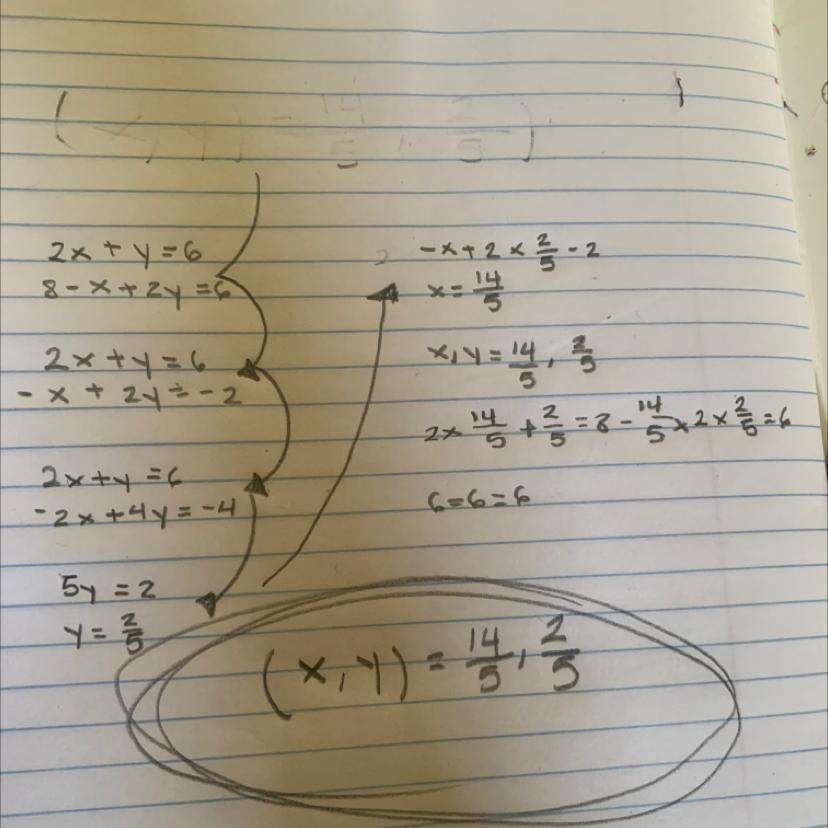 (x, y) = 14/5, 2/5)
2x + y = 6
8 - x + 2y = 6
2x + y = 6
- x + 2y = - 2
2x + y = 6
-2x + 4y = -4
5y = 2
y = 2/5
-x + 2 x 2/5 - 2
x = 14/5
x, y = 14/5, 2/5
2x 14/5 + 2/5 = 8 - 14/5 x 2 x 2/5 = 6
6 = 6 = 6
(x, y) = 14/5, 2/5